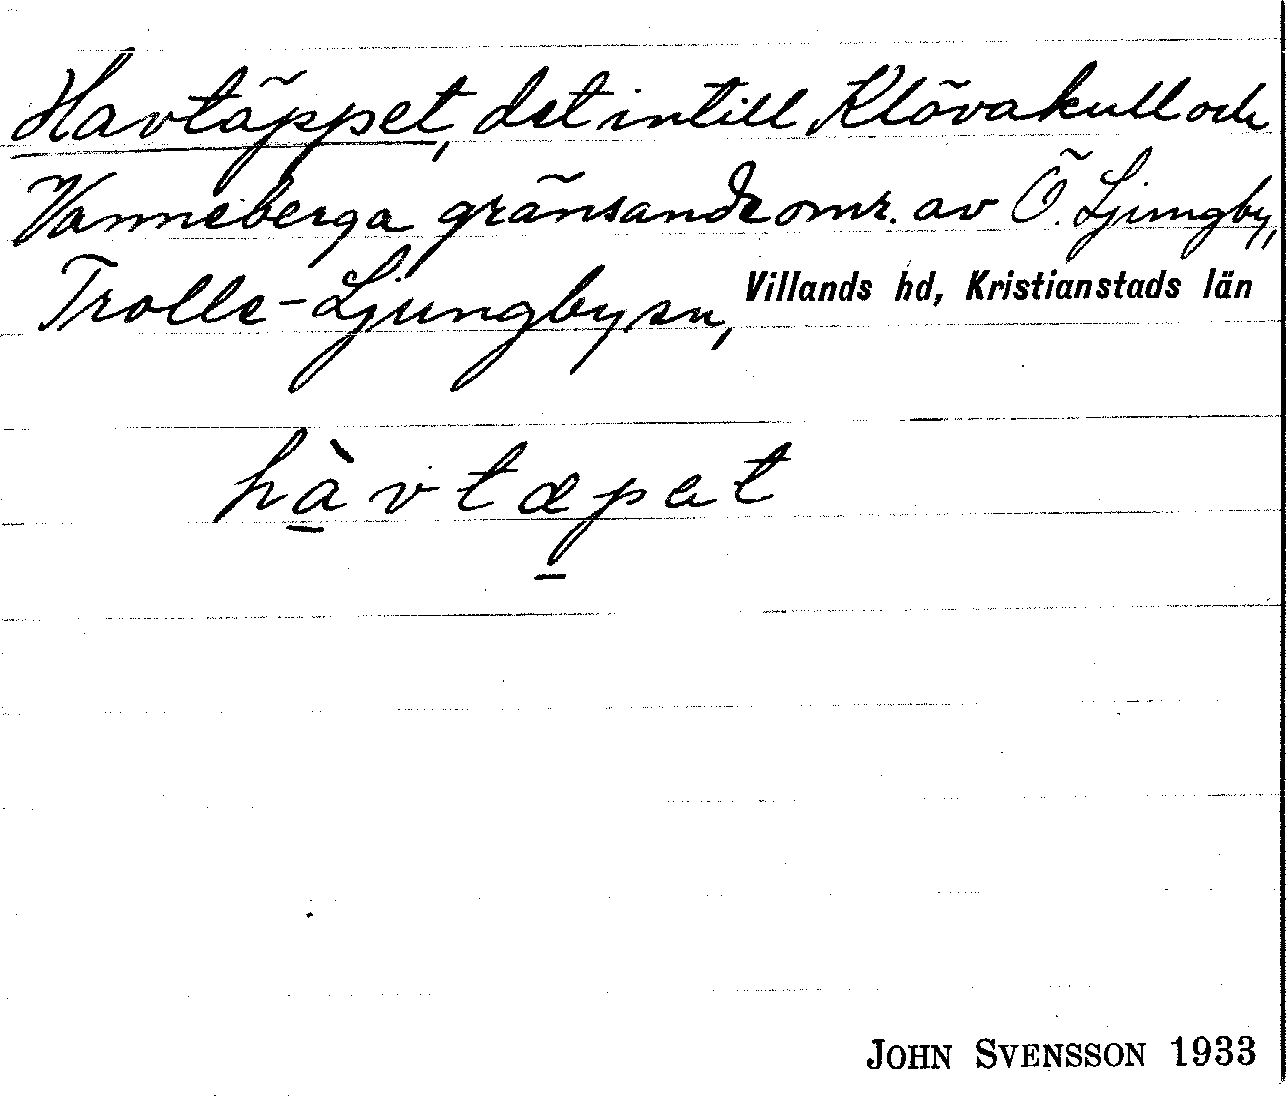 Havtäppet, det intill Klövakull och
Vanneberga gränsande omr. av Ö. Ljungby,
Trolle-Ljungby sn, Villands hd, Kristianstads län
hàvtæpet
JOHN SVENSSON 1933